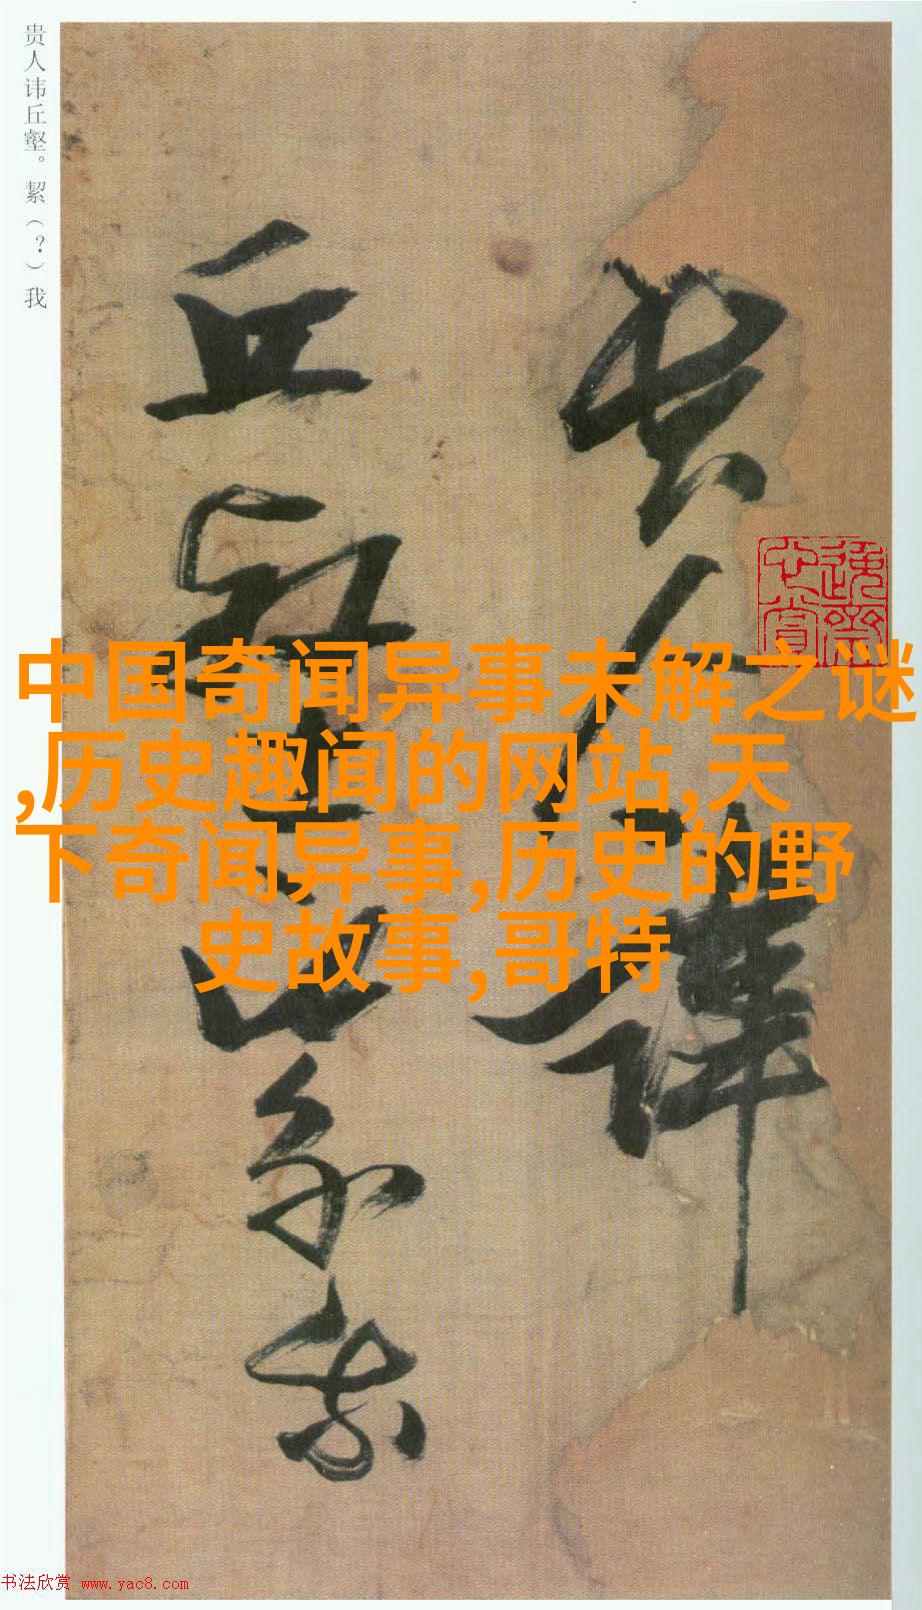 贵人讳丘壑。絜（？）我
贵人讳
丘壑
絜我
中国奇闻异事未解之谜
,历史趣闻的网站,天
下奇闻异事,历史的野
史故事,哥特
书法欣赏 www.yac8.com